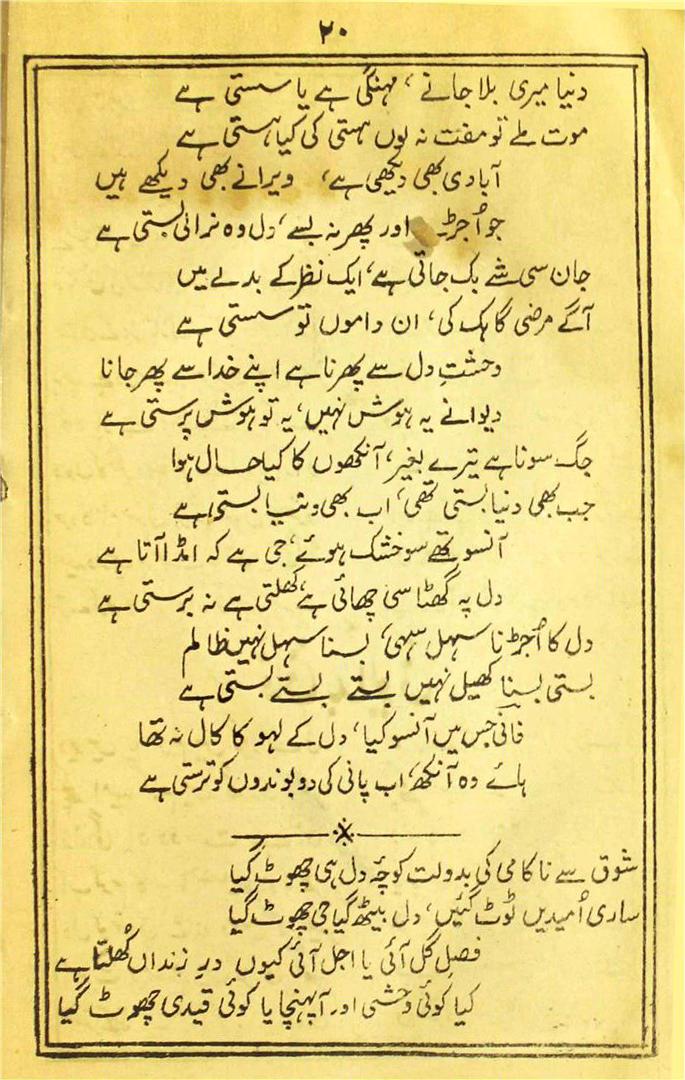 ۲۰
دنیا میری بلا جانے، مہنگی ہے یا سستی ہے
موت ملے تو مفت نہ لوں ہستی کی کیا ہستی ہے
آبادی بھی دیکھی ہے، ویرانے بھی دیکھے ہیں
جو اُجڑے اور پھر نہ بسے، دل وہ نرالی بستی ہے
جان سی شے بک جاتی ہے، ایک نظر کے بدلے میں
آگے مرضی گاہک کی، ان داموں تو سستی ہے
وحشتِ دل سے پھرنا ہے اپنے خدا سے پھر جانا
دیوانے یہ ہوش نہیں، یہ تو ہوش پرستی ہے
جگ سونا ہے تیرے بغیر، آنکھوں کا کیا حال ہوا
جب بھی دنیا بستی تھی، اب بھی دنیا بستی ہے
آنسو تھے سو خشک ہوئے، جی ہے کہ امڈا آتا ہے
دل پہ گھٹا سی چھائی ہے، کھلتی ہے نہ برستی ہے
دل کا اُجڑنا سہل سہی، بسنا سہل نہیں ظالم
بستی بسنا کھیل نہیں بستے بستے بستی ہے
فانی جس میں آنسو کیا، دل کے لہو کا کال نہ تھا
ہائے وہ آنکھ، اب پانی کی دو بوندوں کو ترستی ہے
شوق سے ناکامی کی بدولت کوچۂ دل ہی چھوٹ گیا
ساری اُمیدیں ٹوٹ گئیں، دل بیٹھ گیا جی چھوٹ گیا
فصلِ گل آئی یا اجل آئی کیوں درِ زنداں کُھلتا ہے
کیا کوئی وحشی اور آ پہنچا یا کوئی قیدی چھوٹ گیا